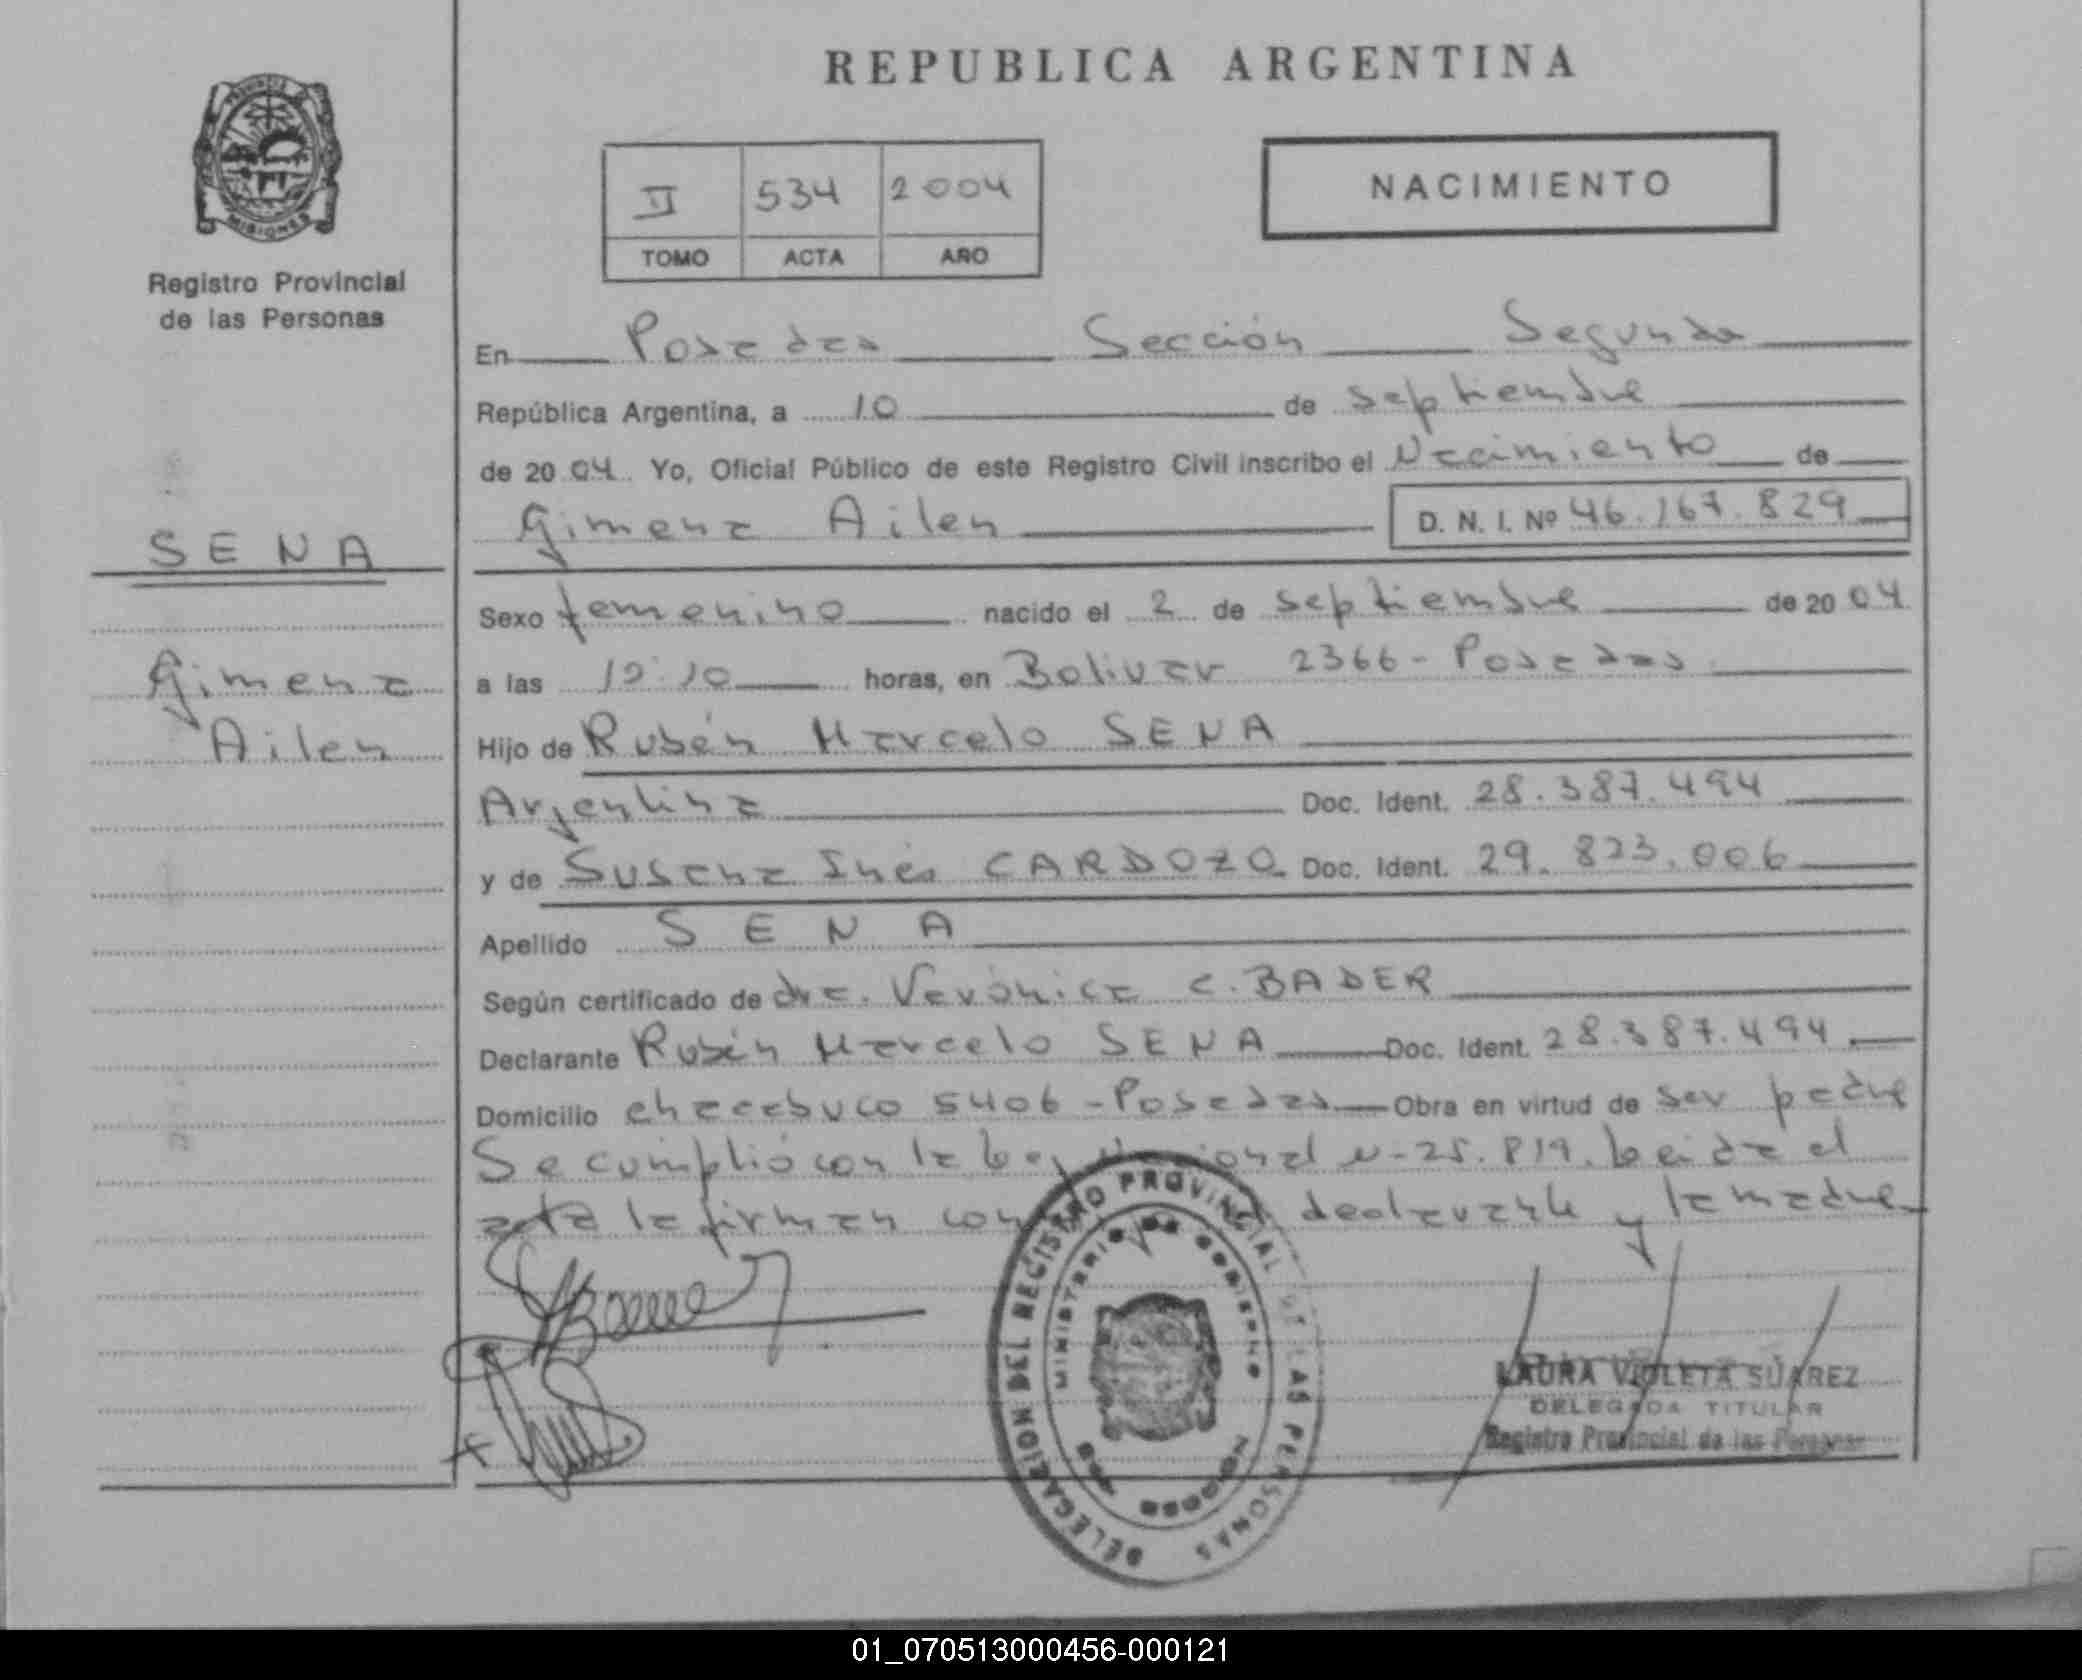 REPUBLICA ARGENTINA
PROVINCIA DE
MISIONES
Registro Provincial
de las Personas
II 534 2004
TOMO ACTA AÑO
NACIMIENTO
En Posadas Sección Segunda
República Argentina, a 10 de septiembre
de 2004 Yo, Oficial Público de este Registro Civil inscribo el Nacimiento de
Gimena Ailen D. N. I. Nº 46.167.829
SENA
Gimena
Ailen
Sexo femenino nacido el 2 de septiembre de 2004
a las horas, en Bolivar 2366 - Posadas
Hijo de Rubén Marcelo SENA
Argentina Doc. Ident. 28.387.494
y de Susana Inés CARDOZO Doc. Ident. 29.823.006
Apellido SENA
Según certificado de dra. Verónica C. BADER
Declarante Rubén Marcelo SENA Doc. Ident. 28.387.494
Domicilio chacabuco 5406 - Posadas Obra en virtud de ser padre
Se cumplió con la Ley Nacional N- 25.819. Leida el
acta la firman con declarante y la madre
DELEGACION DEL REGISTRO PROVINCIAL DE LAS PERSONAS
MINISTERIO DE GOBIERNO
LAURA VIOLETA SUAREZ
DELEGADA TITULAR
Registro Provincial de las Personas
01_070513000456-000121